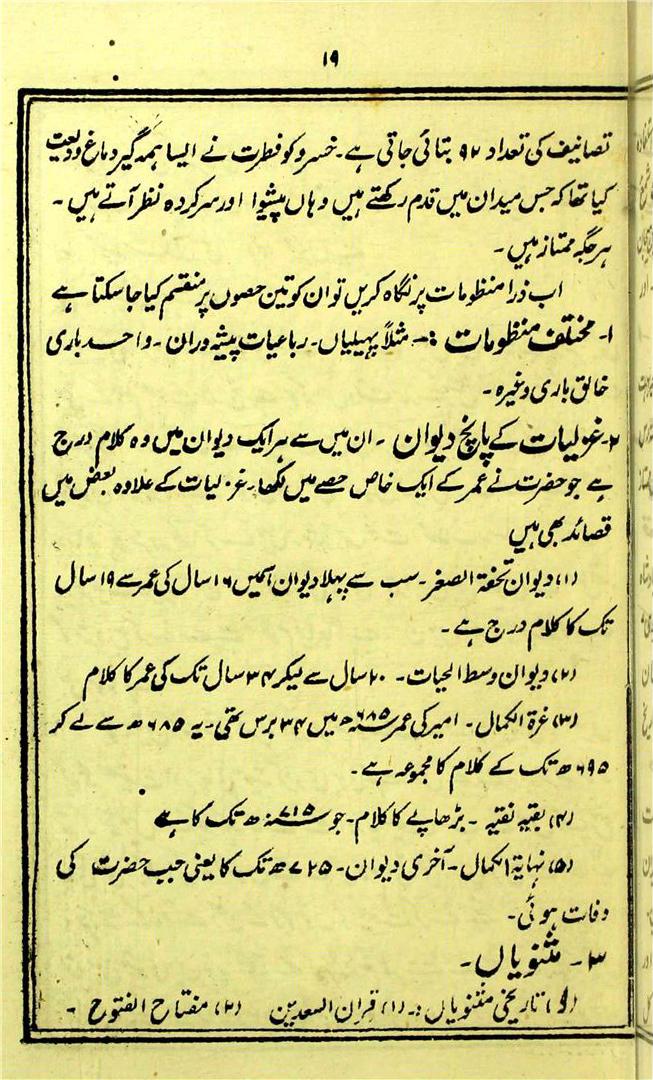 ۱۹
تصانیف کی تعداد ۹۲ بتائی جاتی ہے۔ خسرو کو فطرت نے ایسا ہمہ گیر دماغ ودیعت
کیا تھا کہ جس میدان میں قدم رکھتے ہیں وہاں پیشوا اور سرکردہ نظر آتے ہیں۔
ہر جگہ ممتاز ہیں۔
اب ذرا منظومات پر نگاہ کریں تو ان کو تین حصوں پر منقسم کیا جا سکتا ہے
۱۔ مختلف منظومات :۔ مثلاً پہیلیاں۔ رباعیات پیشہ وران۔ واحد باری
خالق باری وغیرہ۔
۲۔ غزلیات کے پانچ دیوان ۔ ان میں سے ہر ایک دیوان میں وہ کلام درج
ہے جو حضرت نے عمر کے ایک خاص حصے میں لکھا۔ غزلیات کے علاوہ بعض میں
قصائد بھی ہیں
(۱) دیوان تحفۃ الصغر۔ سب سے پہلا دیوان ہمیں ۱۶ سال کی عمر سے ۱۹ سال
تک کا کلام درج ہے۔
(۲) دیوان وسط الحیات۔ ۲۰ سال سے لیکر ۳۴ سال تک کی عمر کا کلام
(۳) غرۃ الکمال۔ امیر کی عمر ۶۸۵ھ میں ۳۴ برس تھی۔ یہ ۶۸۵ھ سے لے کر
۶۹۵ھ تک کے کلام کا مجموعہ ہے۔
(۴) بقیہ نقیہ ۔ بڑھاپے کا کلام۔ جو ۷۱۵ھ تک کا ہے
(۵) نہایۃ الکمال۔ آخری دیوان۔ ۷۲۵ھ تک کا یعنی جب حضرت کی
وفات ہوئی۔
۳۔ مثنویاں۔
(و) تاریخی مثنویاں :۔ (۱) قران السعدین (۲) مفتاح الفتوح ۔